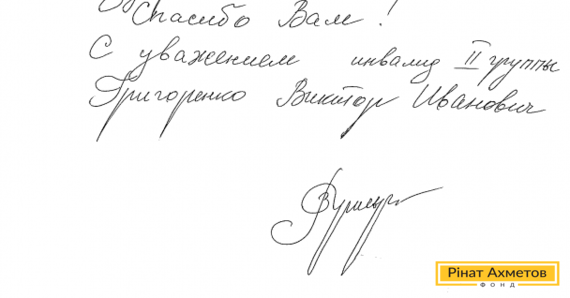 Спасибо Вам!
С уважением инвалид II группы
Григоренко Виктор Иванович
Рінат Ахметов
ФОНД